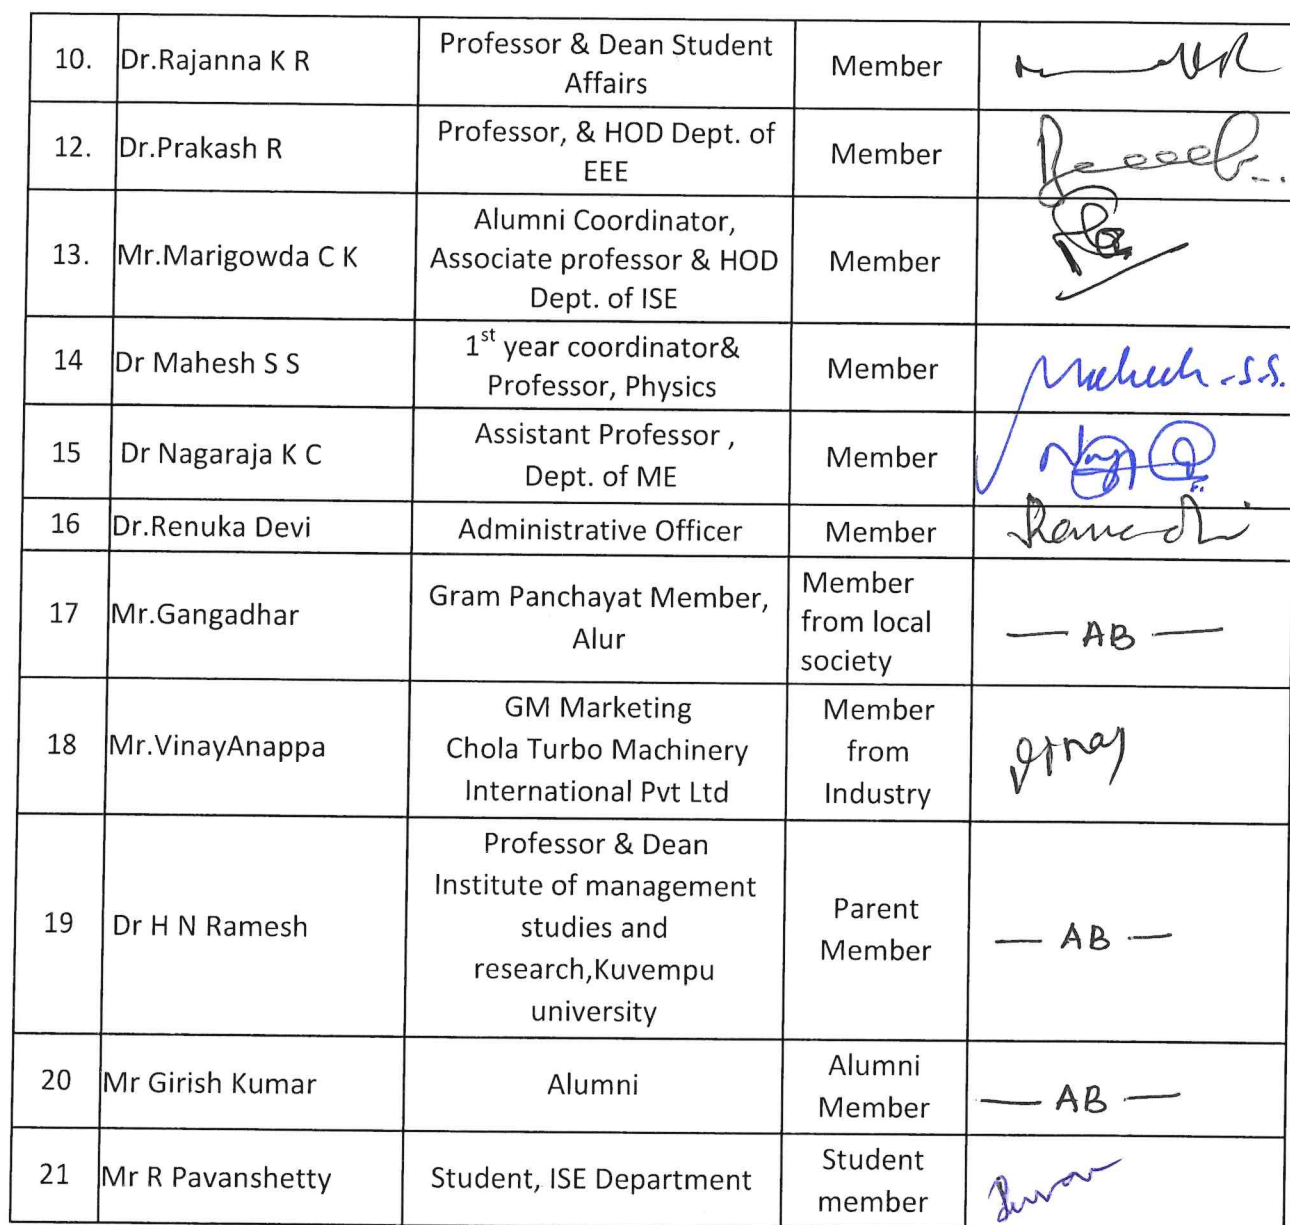 10. Dr.Rajanna K R Professor & Dean Student Affairs Member
12. Dr.Prakash R Professor, & HOD Dept. of EEE Member
13. Mr.Marigowda C K Alumni Coordinator, Associate professor & HOD Dept. of ISE Member
14 Dr Mahesh S S 1st year coordinator& Professor, Physics Member Mahesh.S.S.
15 Dr Nagaraja K C Assistant Professor , Dept. of ME Member
16 Dr.Renuka Devi Administrative Officer Member
17 Mr.Gangadhar Gram Panchayat Member, Alur Member from local society — AB —
18 Mr.VinayAnappa GM Marketing Chola Turbo Machinery International Pvt Ltd Member from Industry Vinay
19 Dr H N Ramesh Professor & Dean Institute of management studies and research,Kuvempu university Parent Member — AB —
20 Mr Girish Kumar Alumni Alumni Member — AB —
21 Mr R Pavanshetty Student, ISE Department Student member